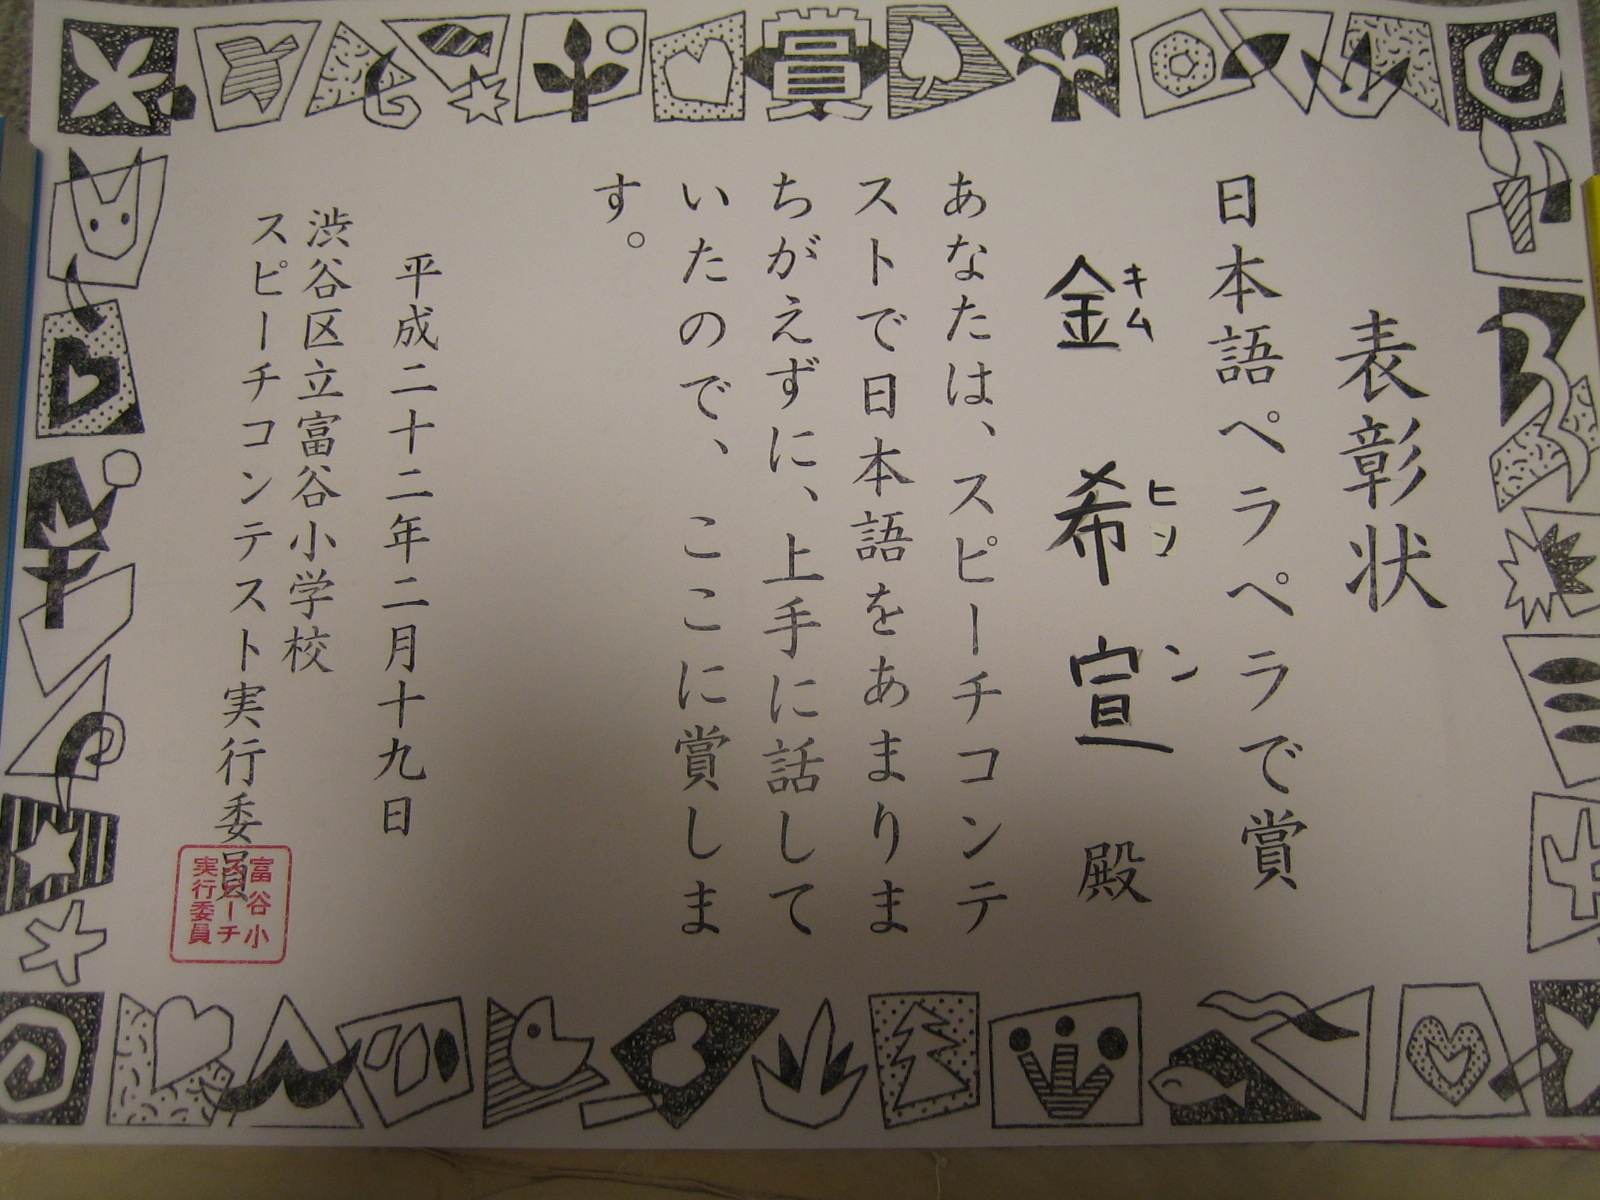 賞
表彰状
日本語ペラペラで賞
金 希宣 殿
キム ヒソン
あなたは、スピーチコンテ
ストで日本語をあまりま
ちがえずに、上手に話して
いたので、ここに賞しま
す。
平成二十二年二月十九日
渋谷区立富谷小学校
スピーチコンテスト実行委員
富谷小
スピーチ
実行委員